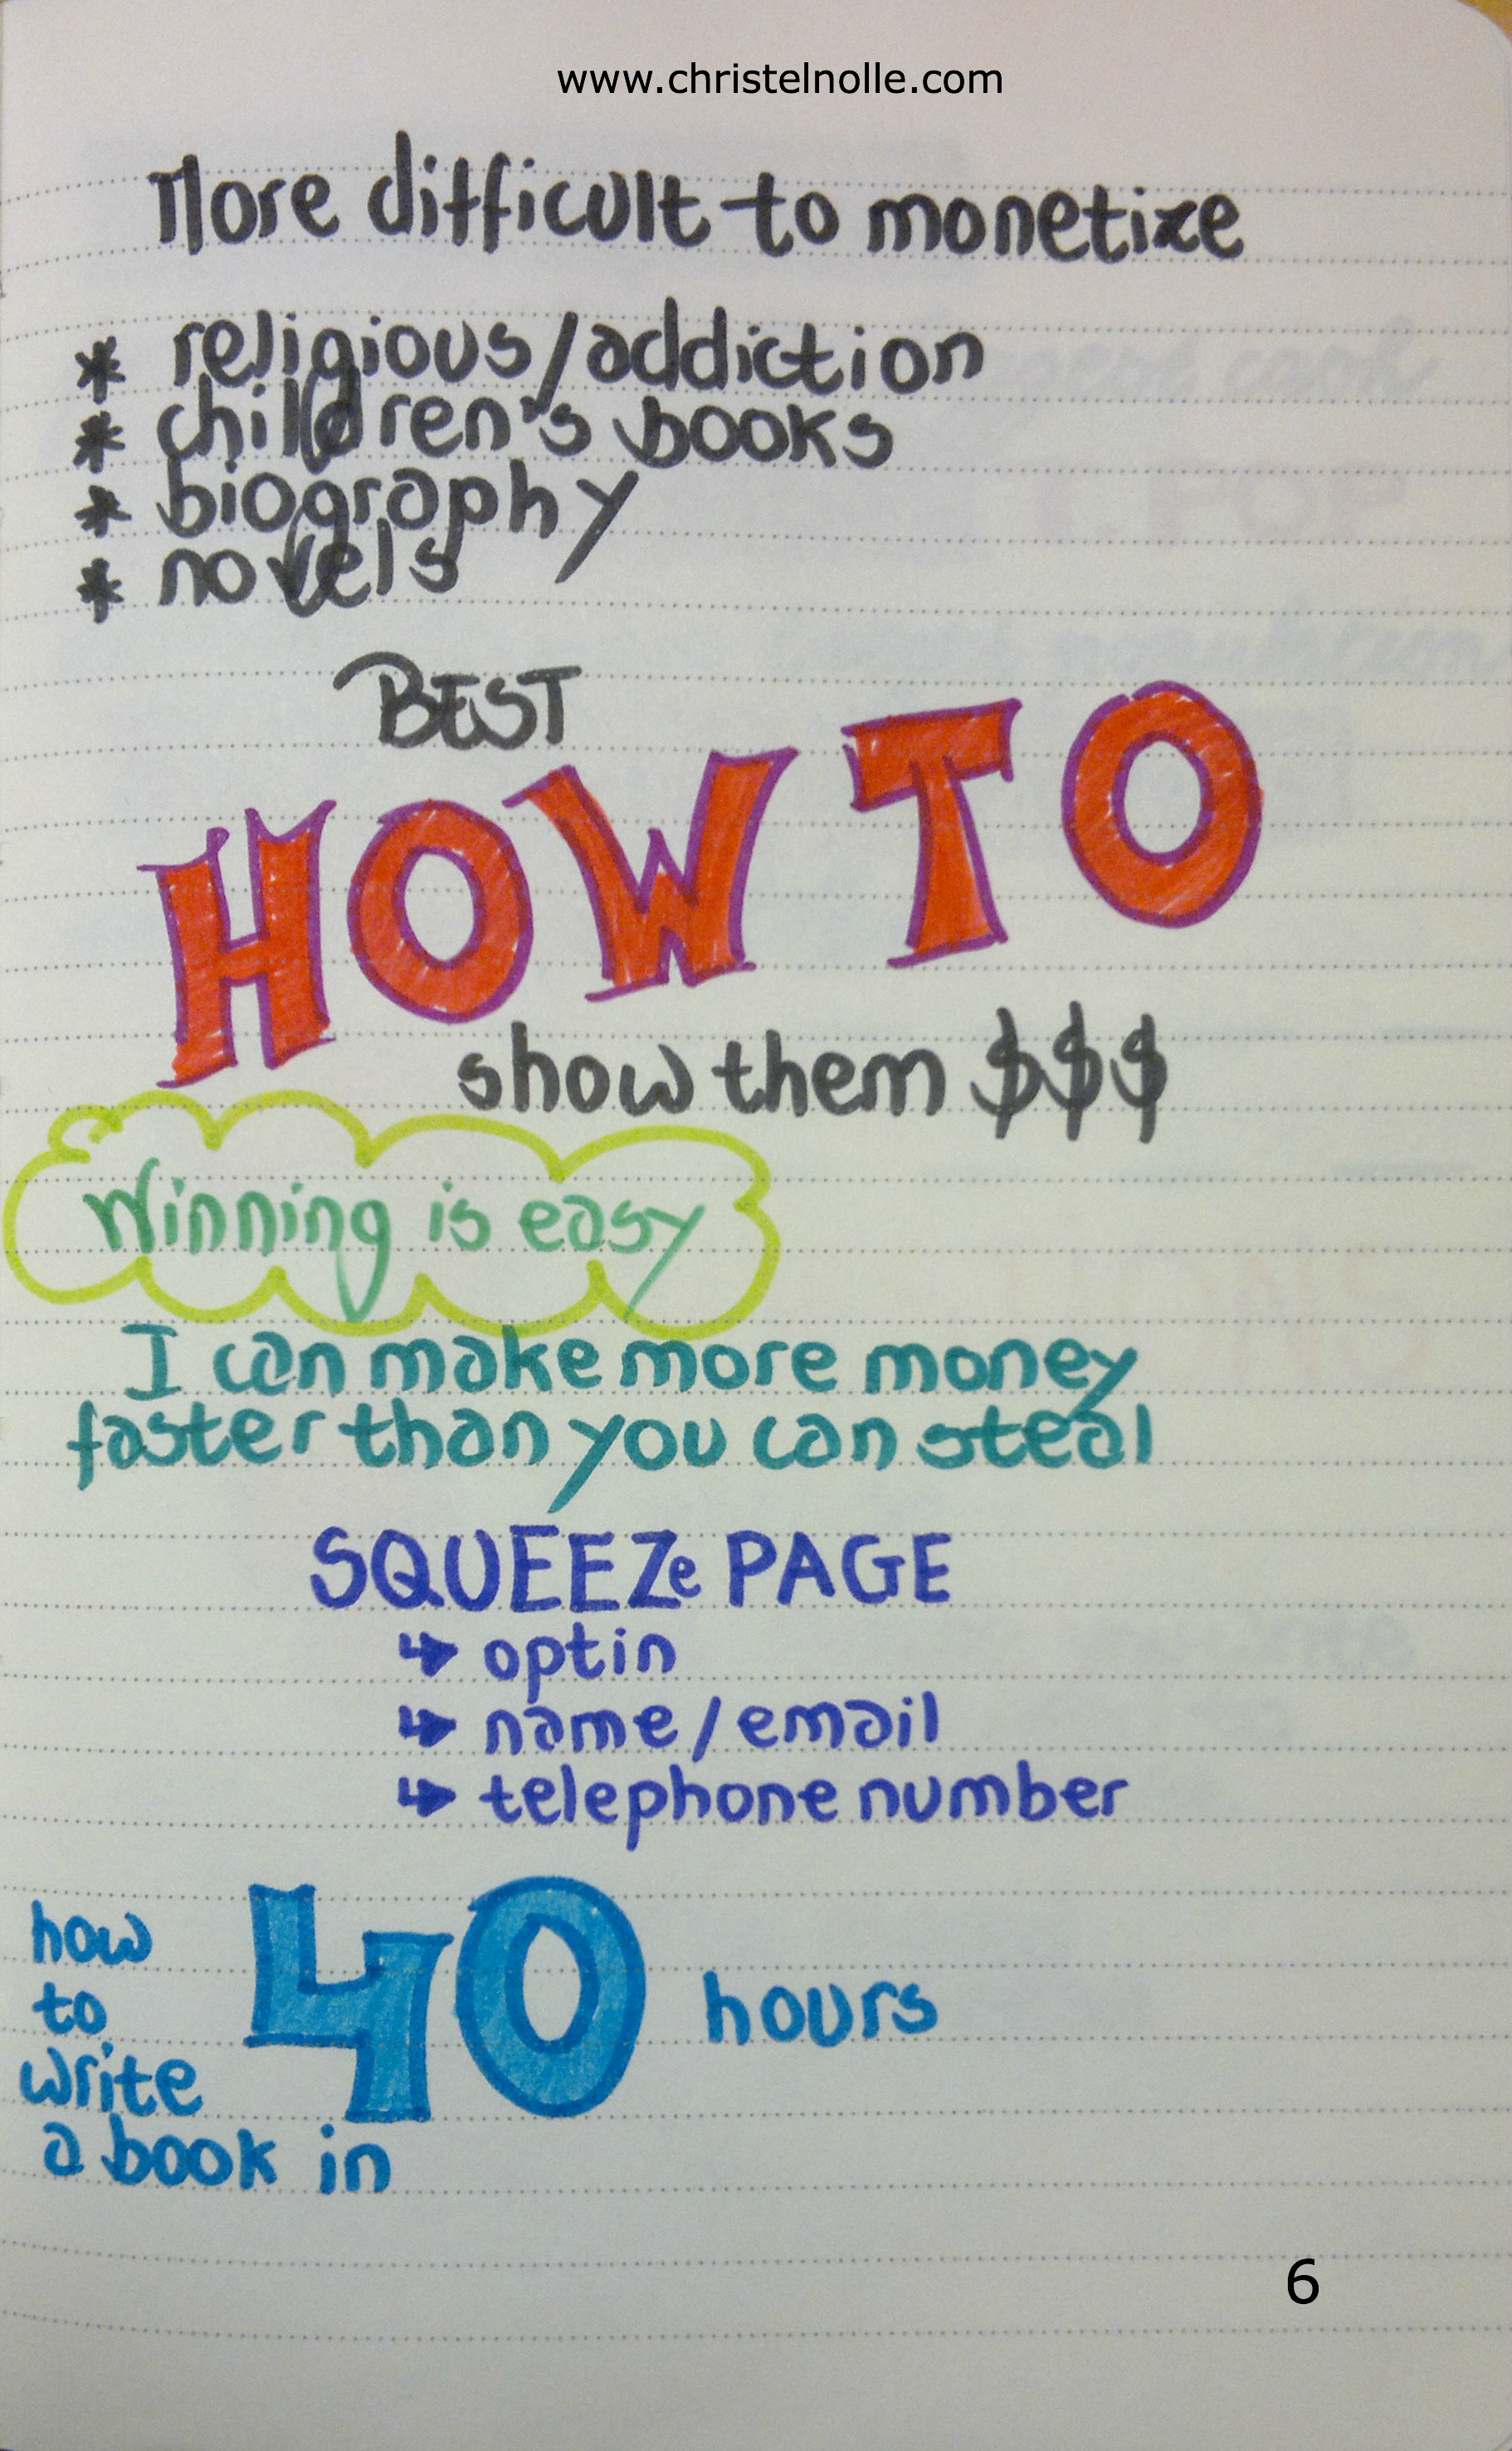 www.christelnolle.com
More difficult to monetize
* religious/addiction
* children's books
* biography
* novels
BEST
HOW TO
show them $$$
Winning is easy
I can make more money
faster than you can steal
SQUEEZe PAGE
↳ optin
↳ name/email
↳ telephone number
how
to
write
a book in
40 hours
6